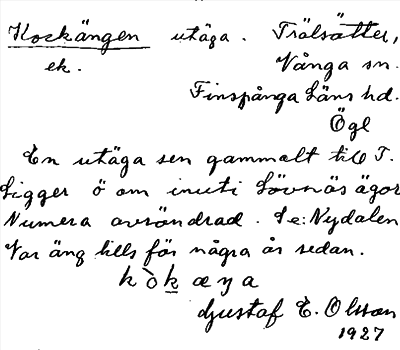 Kockängen utäga. Trälsätter,
ek. Vånga sn.
Finspånga Läns hd.
Ögl
En utäga sen gammalt till T.
Ligger ö om inuti Lövnäs ägor
Numera avsöndrad. Se: Nydalen
Var äng tills för några år sedan.
kòkæŋa
Gustaf E. Olsson
1927